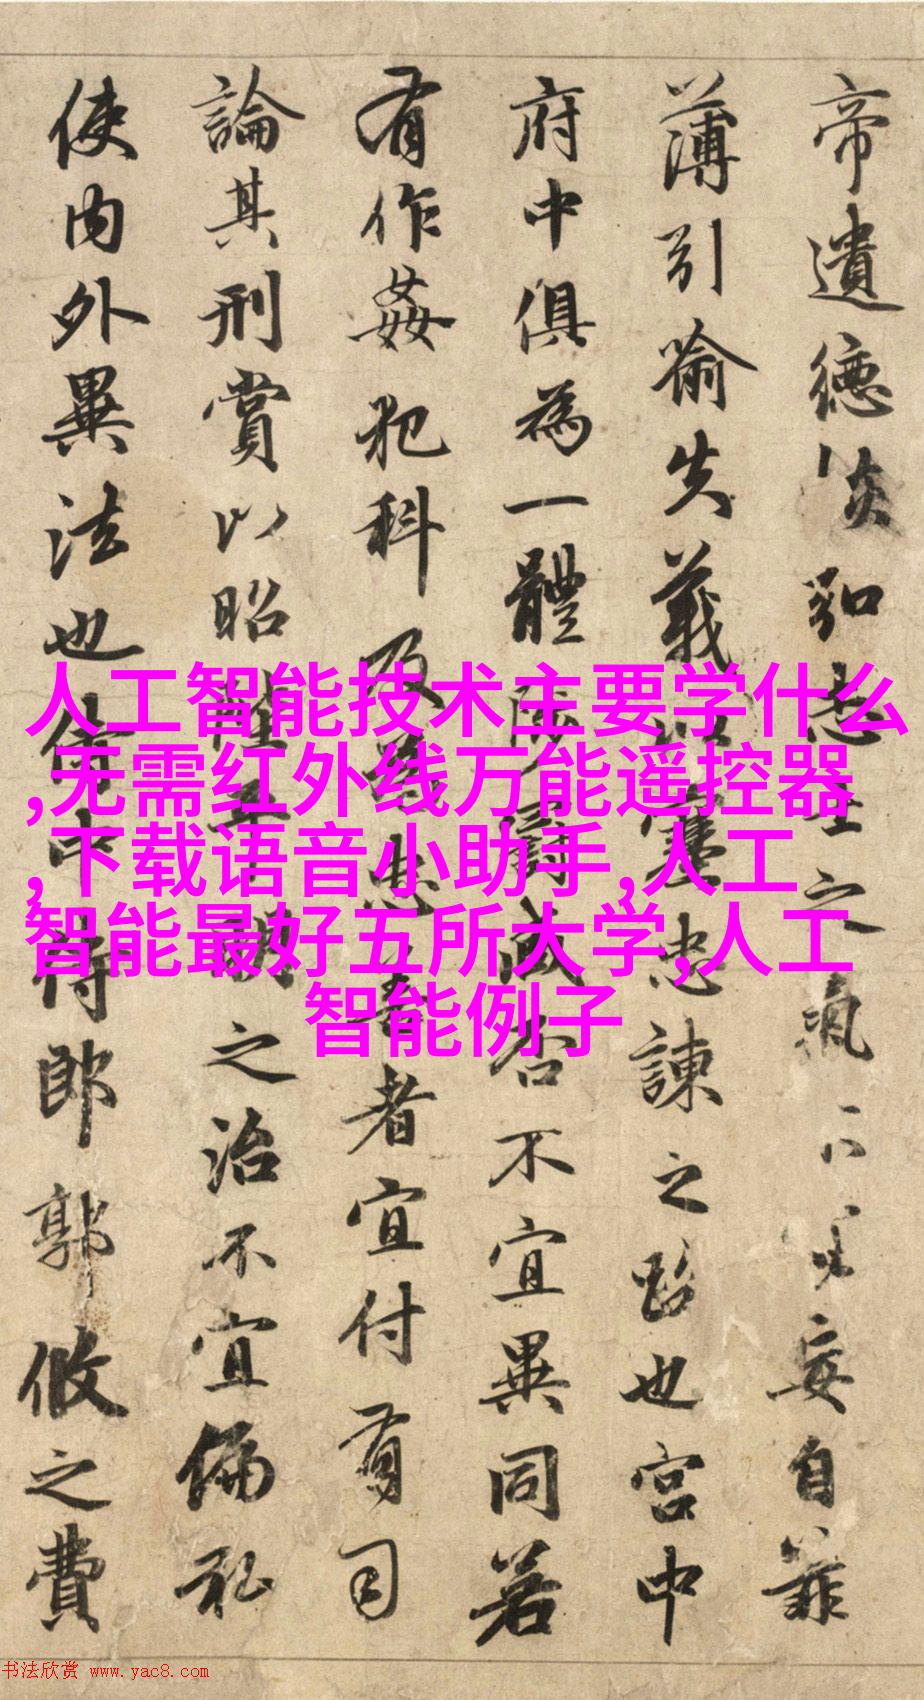 帝遺德恢弘志士之氣不宜妄自菲
薄引喻失義以塞忠諫之路也宮中
府中俱為一體陟罰臧否不宜異同若
有作姦犯科及為忠善者宜付有司
論其刑賞以昭陛平明之治不宜偏私
使內外異法也侍中侍郎郭攸之費
人工智能技术主要学什么
,无需红外线万能遥控器
,下载语音小助手,人工
智能最好五所大学,人工
智能例子
书法欣赏 www.yac8.com